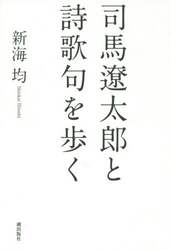 司馬遼太郎と
詩歌句を歩く
新海 均
Shinkai Hitoshi
潮出版社